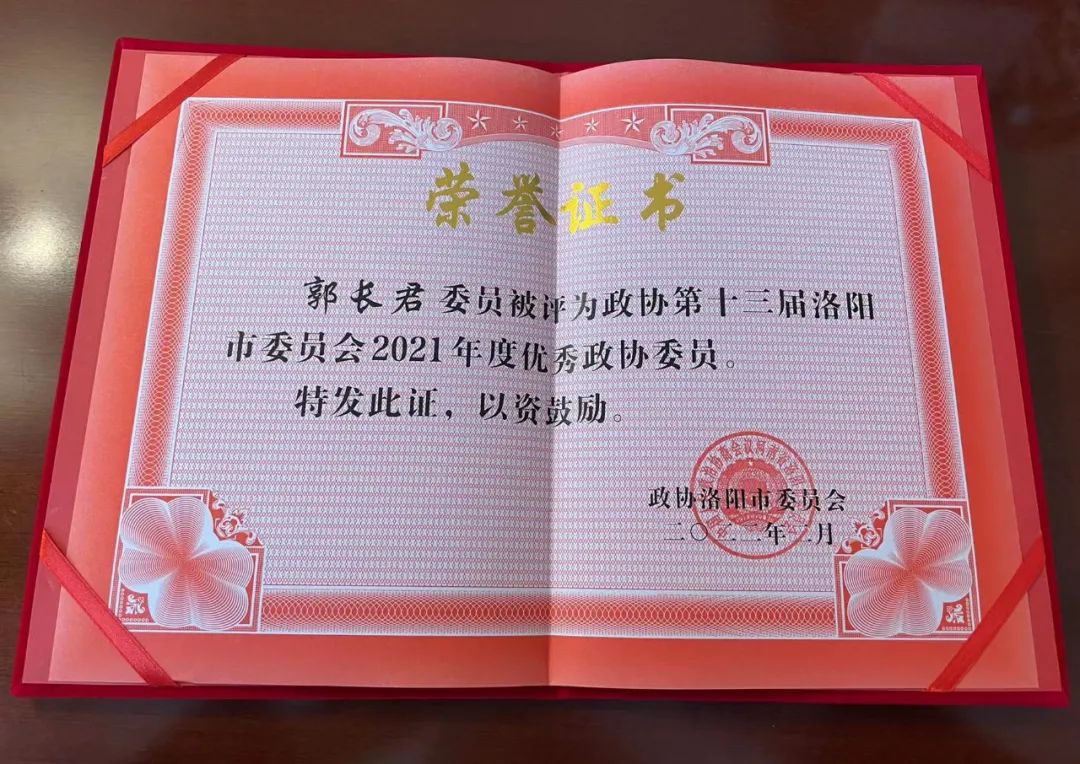 荣誉证书
郭长君委员被评为政协第十三届洛阳
市委员会2021年度优秀政协委员。
特发此证，以资鼓励。
政协洛阳市委员会
二〇二二年二月